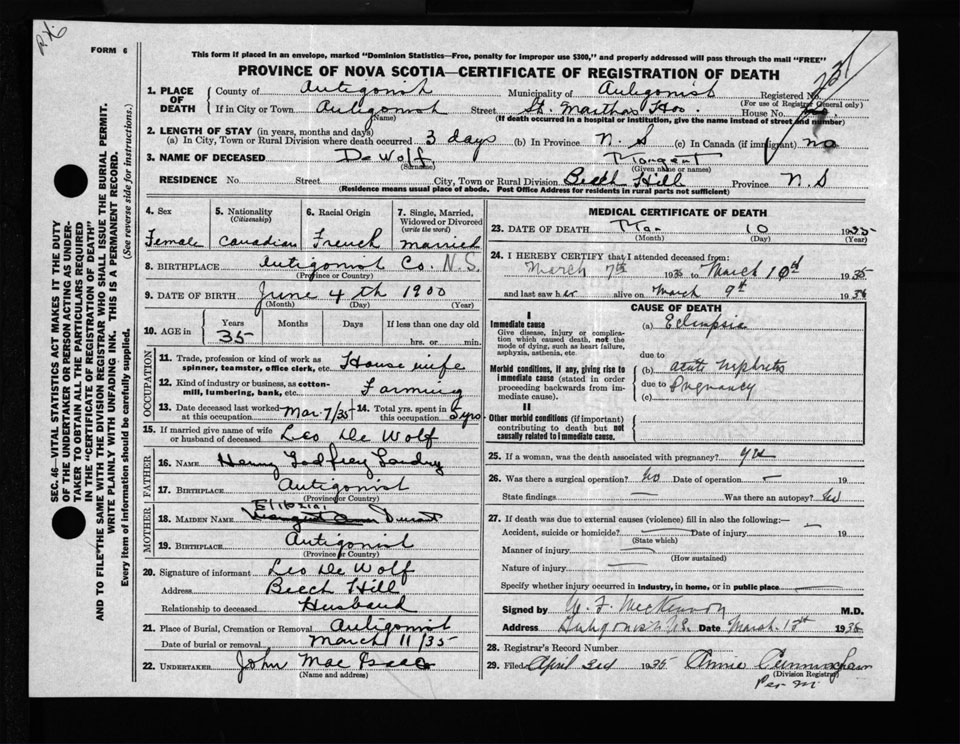 FORM 6
This form if placed in an envelope, marked "Dominion Statistics—Free, penalty for improper use $300," and properly addressed will pass through the mail "FREE"
PROVINCE OF NOVA SCOTIA—CERTIFICATE OF REGISTRATION OF DEATH
1. PLACE OF DEATH
County of Antigonish Municipality of Antigonish Registered No.
(For use of Registrar General only)
If in City or Town Antigonish Street St. Marthas Hos House No.
(Name) (If death occurred in a hospital or institution, give the name instead of street and number)
2. LENGTH OF STAY (in years, months and days)
(a) In City, Town or Rural Division where death occurred 3 days (b) In Province N. S (c) In Canada (if immigrant) no
3. NAME OF DECEASED De Wolf Margaret
(Surname) (Given name or names)
RESIDENCE No. Street City, Town or Rural Division Beech Hill Province N. S
(Residence means usual place of abode. Post Office Address for residents in rural parts not sufficient)
SEC. 46—VITAL STATISTICS ACT MAKES IT THE DUTY
OF THE UNDERTAKER OR PERSON ACTING AS UNDER-
TAKER TO OBTAIN ALL THE PARTICULARS REQUIRED
IN THE "CERTIFICATE OF REGISTRATION OF DEATH"
AND TO FILE THE SAME WITH THE DIVISION REGISTRAR WHO SHALL ISSUE THE BURIAL PERMIT.
WRITE PLAINLY WITH UNFADING INK. THIS IS A PERMANENT RECORD.
Every item of information should be carefully supplied. (See reverse side for instructions.)
4. Sex 5. Nationality (Citizenship) 6. Racial Origin 7. Single, Married, Widowed or Divorced (write the word)
Female Canadian French married
8. BIRTHPLACE Antigonish Co. N.S.
(Province or Country)
9. DATE OF BIRTH June 4th 1900
(Month) (Day) (Year)
10. AGE in Years Months Days If less than one day old
35 hrs. or min.
OCCUPATION
11. Trade, profession or kind of work as spinner, teamster, office clerk, etc. Housewife
12. Kind of industry or business, as cotton-mill, lumbering, bank, etc. Farming
13. Date deceased last worked at this occupation Mar 7/35 14. Total yrs. spent in this occupation 5 yrs
15. If married give name of wife or husband of deceased Leo De Wolf
FATHER
16. NAME Henry Godfrey Landry
17. BIRTHPLACE Antigonish
(Province or Country)
MOTHER
18. MAIDEN NAME
19. BIRTHPLACE Antigonish
(Province or Country)
20. Signature of informant Leo De Wolf
Address Beech Hill
Relationship to deceased Husband
21. Place of Burial, Cremation or Removal Antigonish
Date of burial or removal March 11/35
22. UNDERTAKER John Mac Isaac
(Name and address)
MEDICAL CERTIFICATE OF DEATH
23. DATE OF DEATH Mar. 10 1935
(Month) (Day) (Year)
24. I HEREBY CERTIFY that I attended deceased from:
March 7th 1935 to March 10th 1935
and last saw her alive on March 9th 1935
CAUSE OF DEATH
I
Immediate cause (a) Eclampsia
Give disease, injury or complication which caused death, not the mode of dying, such as heart failure, asphyxia, asthenia, etc.
due to
Morbid conditions, if any, giving rise to immediate cause (stated in order proceeding backwards from immediate cause). (b) acute nephritis
due to Pregnancy
(c)
II
Other morbid conditions (if important) contributing to death but not causally related to immediate cause.
25. If a woman, was the death associated with pregnancy? yes
26. Was there a surgical operation? No Date of operation —
State findings — Was there an autopsy? No
27. If death was due to external causes (violence) fill in also the following:—
Accident, suicide or homicide? Date of injury 19
(State which)
Manner of injury
(How sustained)
Nature of injury
Specify whether injury occurred in industry, in home, or in public place
Signed by M.D.
Address Antigonish N.S. Date March. 1935
28. Registrar's Record Number
29. Filed April 1935 Annie Cunningham
(Division Registrar)
Per M